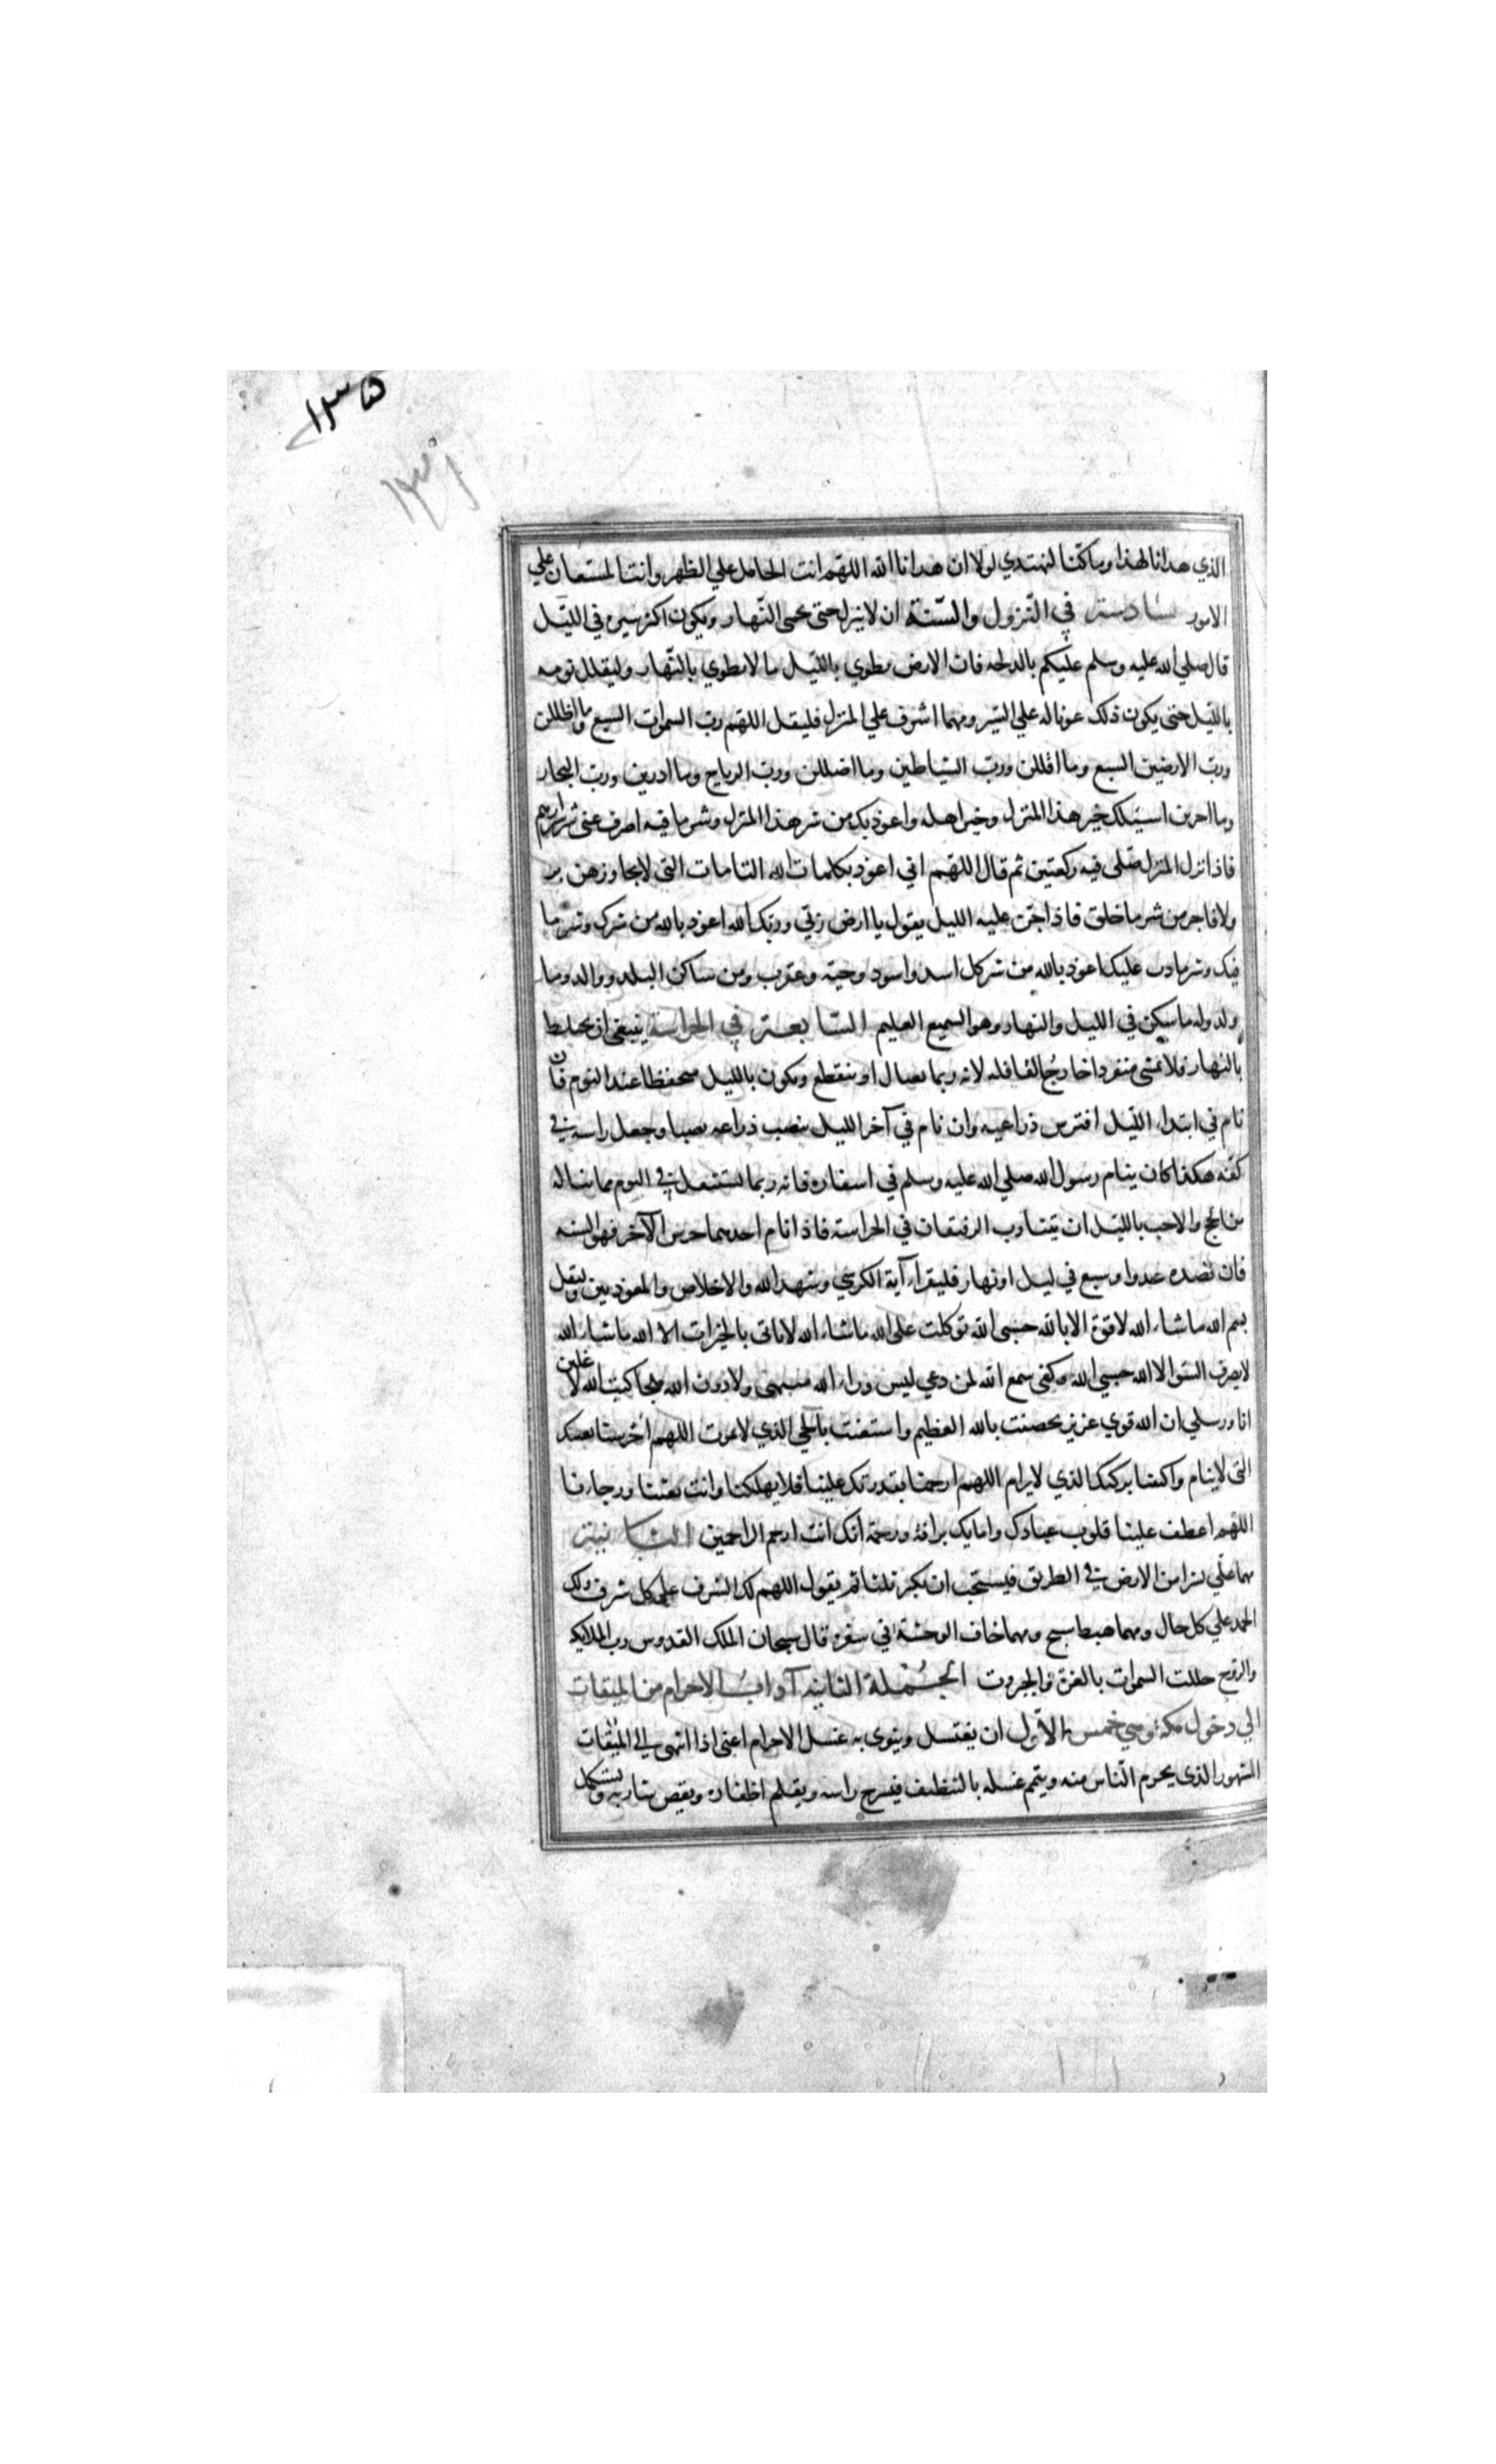 ١٣٥
الذي هدانا لهذا وما كنا لنهتدي لولا ان هدانا الله اللهم انت الحامل علي الظهر وانت المستعان علي
الامور السادسة في النزول والسنة ان لا ينزل حتى يحمى النهار ويكون اكثر سيره في الليل
قال صلي الله عليه وسلم عليكم بالدلجه فان الارض تطوي بالليل ما لا تطوي بالنهار وليقلل نومه
بالليل حتى يكون ذلك عونا له علي السير ومهما اشرف علي المنزل فليقل اللهم رب السموات السبع وما اظللن
ورب الارضين السبع وما اقللن ورب الشياطين وما اضللن ورب الرياح وما اذرين ورب البحار
وما اجرين اسئلك خير هذا المنزل وخير اهله واعوذ بك من شر هذا المنزل وشر ما فيه اصرف عني شر شرارهم
فاذا نزل المنزل صلى فيه ركعتين ثم قال اللهم اني اعوذ بكلمات الله التامات التي لا يجاوزهن بر
ولا فاجر من شر ما خلق فاذا جن عليه الليل يقول يا ارض ربي وربك الله اعوذ بالله من شرك وشر ما
فيك وشر ما دب عليك اعوذ بالله من شر كل اسد واسود وحية وعقرب ومن ساكن البلد ووالد وما
ولد وله ما سكن في الليل والنهار وهو السميع العليم السابعة في الحراسة ينبغي ان يحتاط
بالنهار فلا يمشي منفردا خارج القافله لانه ربما يغتال او ينقطع ويكون بالليل متحفظا عند النوم فان
نام في ابتداء الليل افترش ذراعيه وان نام في آخر الليل ينصب ذراعه نصبا وجعل راسه في
كفه هكذا كان ينام رسول الله صلي الله عليه وسلم في اسفاره فانه ربما استثقل في النوم مما يناله
من الحج والاحب بالليل ان يتناوب الرفيقان في الحراسة فاذا نام احدهما حرس الآخر فهو السنه
فان قصده عدو او سبع في ليل او نهار فليقراء آية الكرسي وشهد الله والاخلاص والمعوذتين وليقل
بسم الله ما شاء الله لا قوة الا بالله حسبي الله توكلت على الله ما شاء الله لا ياتي بالخيرات الا الله ما شاء الله
لا يصرف السوء الا الله حسبي الله وكفى سمع الله لمن دعي ليس وراء الله منتهى ولا دون الله ملجا كتب الله لا غلبن
انا ورسلي ان الله قوي عزيز تحصنت بالله العظيم واستغثت بالحي الذي لا يموت اللهم احرسنا بعينك
التي لا ينام واكنفنا بركنك الذي لا يرام اللهم ارحمنا بقدرتك علينا فلا يهلكنا وانت ثقتنا ورجاءنا
اللهم اعطف علينا قلوب عبادك وامايك برافة ورحمة انك انت ارحم الراحمين الثامنة
مهما علي نشزا من الارض في الطريق فيستحب ان يكبر ثلثا ثم يقول اللهم لك الشرف علي كل شرف ولك
الحمد علي كل حال ومهما هبط سبح ومهما خاف الوحشة في سفره قال سبحان الملك القدوس رب الملائكه
والروح جللت السموات بالعزة والجبروت الجملة الثانيه آداب الاحرام من الميقات
الي دخول مكة وهي خمس الاول ان يغتسل وينوي به غسل الاحرام اعني اذا انتهى الي الميقات
المشهور الذي يحرم الناس منه ويتم غسله بالتنظيف فيسرح راسه ويقلم اظفاره ويقص شاربه ويستكمل